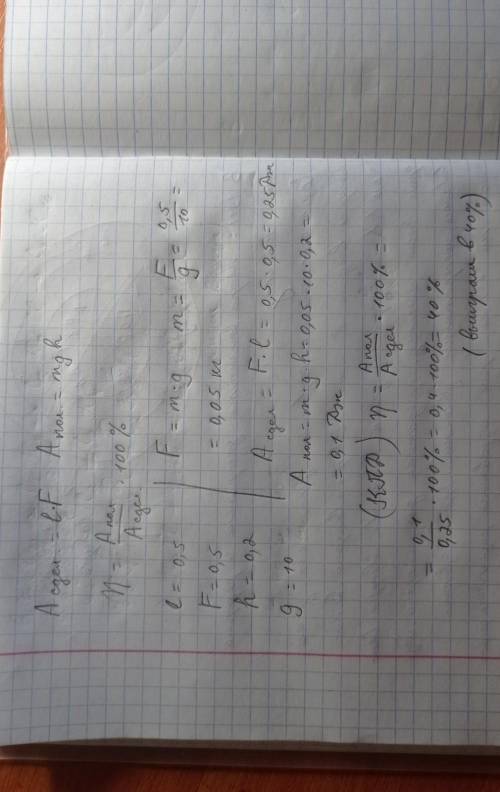 A сдел = l·F A пол = mgh
η = A пол / A сдел · 100%
l = 0,5
F = 0,5
h = 0,2
g = 10
F = m·g m = F/g = 0,5/10 =
= 0,05 кг
A сдел = F·l = 0,5·0,5 = 0,25 Дж
A пол = m·g·h = 0,05·10·0,2 =
= 0,1 Дж
(КПД) η = A пол / A сдел · 100% =
= 0,1/0,25 · 100% = 0,4·100% = 40%
(выиграли в 40%)